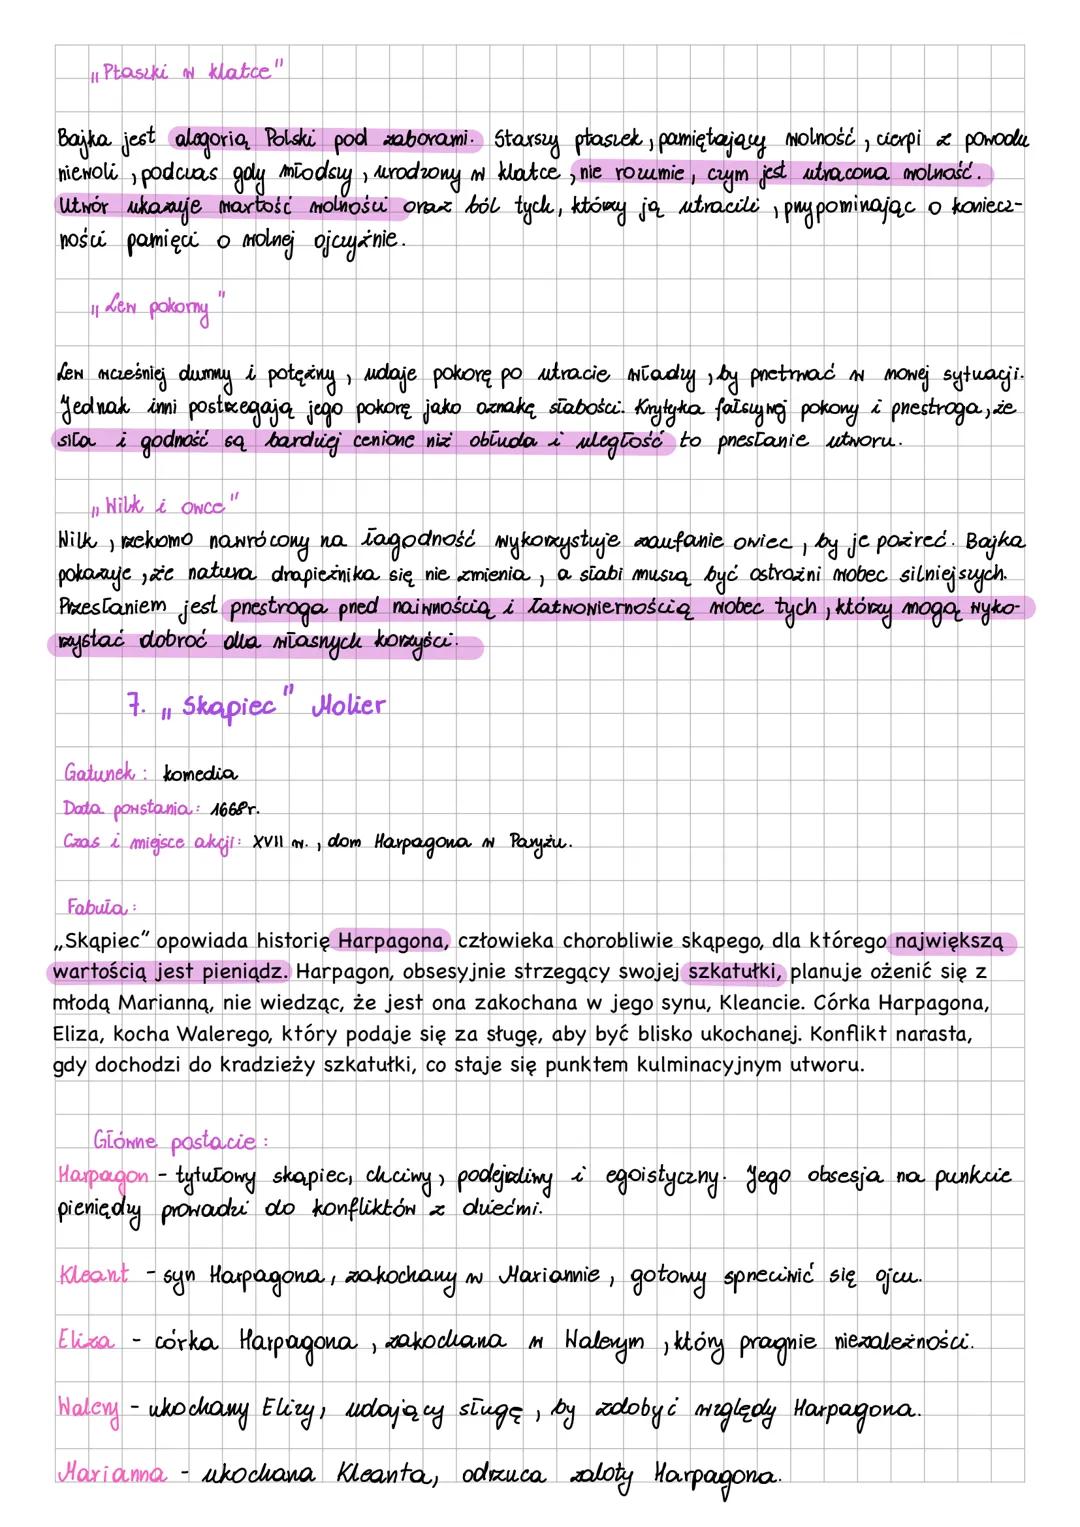 „Ptaszki w klatce"
Bajka jest alegorią Polski pod zaborami. Starszy ptaszek, pamiętający wolność, cierpi z powodu
niewoli, podczas gdy młodszy, urodzony w klatce, nie rozumie, czym jest utracona wolność.
Utwór ukazuje wartość wolności oraz ból tych, którzy ją utracili, przypominając o koniecz-
ności pamięci o wolnej ojczyźnie.
„Lew pokorny"
Lew wcześniej dumny i potężny, udaje pokorę po utracie władzy, by przetrwać w nowej sytuacji.
Jednak inni postrzegają jego pokorę jako oznakę słabości. Krytyka fałszywej pokory i przestroga, że
siła i godność są bardziej cenione niż obłuda i uległość to przesłanie utworu.
„Wilk i owce"
Wilk, rzekomo nawrócony na łagodność wykorzystuje zaufanie owiec, by je pożreć. Bajka
pokazuje, że natura drapieżnika się nie zmienia, a słabi muszą być ostrożni wobec silniejszych.
Przesłaniem jest przestroga przed naiwnością i łatwowiernością wobec tych, którzy mogą wyko-
rzystać dobroć dla własnych korzyści.
7. „Skąpiec" Molier
Gatunek: komedia
Data powstania: 1668r.
Czas i miejsce akcji: XVII w., dom Harpagona w Paryżu.
Fabuła:
„Skąpiec” opowiada historię Harpagona, człowieka chorobliwie skąpego, dla którego największą
wartością jest pieniądz. Harpagon, obsesyjnie strzegący swojej szkatułki, planuje ożenić się z
młodą Marianną, nie wiedząc, że jest ona zakochana w jego synu, Kleancie. Córka Harpagona,
Eliza, kocha Walerego, który podaje się za sługę, aby być blisko ukochanej. Konflikt narasta,
gdy dochodzi do kradzieży szkatułki, co staje się punktem kulminacyjnym utworu.
Główne postacie:
Harpagon - tytułowy skąpiec, chciwy, podejrzliwy i egoistyczny. Jego obsesja na punkcie
pieniędzy prowadzi do konfliktów z dziećmi.
Kleant - syn Harpagona, zakochany w Mariannie, gotowy sprzeciwić się ojcu.
Eliza - córka Harpagona, zakochana w Walerym, który pragnie niezależności.
Walery - ukochany Elizy, udający sługę, by zdobyć względy Harpagona.
Marianna - ukochana Kleanta, odrzuca zaloty Harpagona.